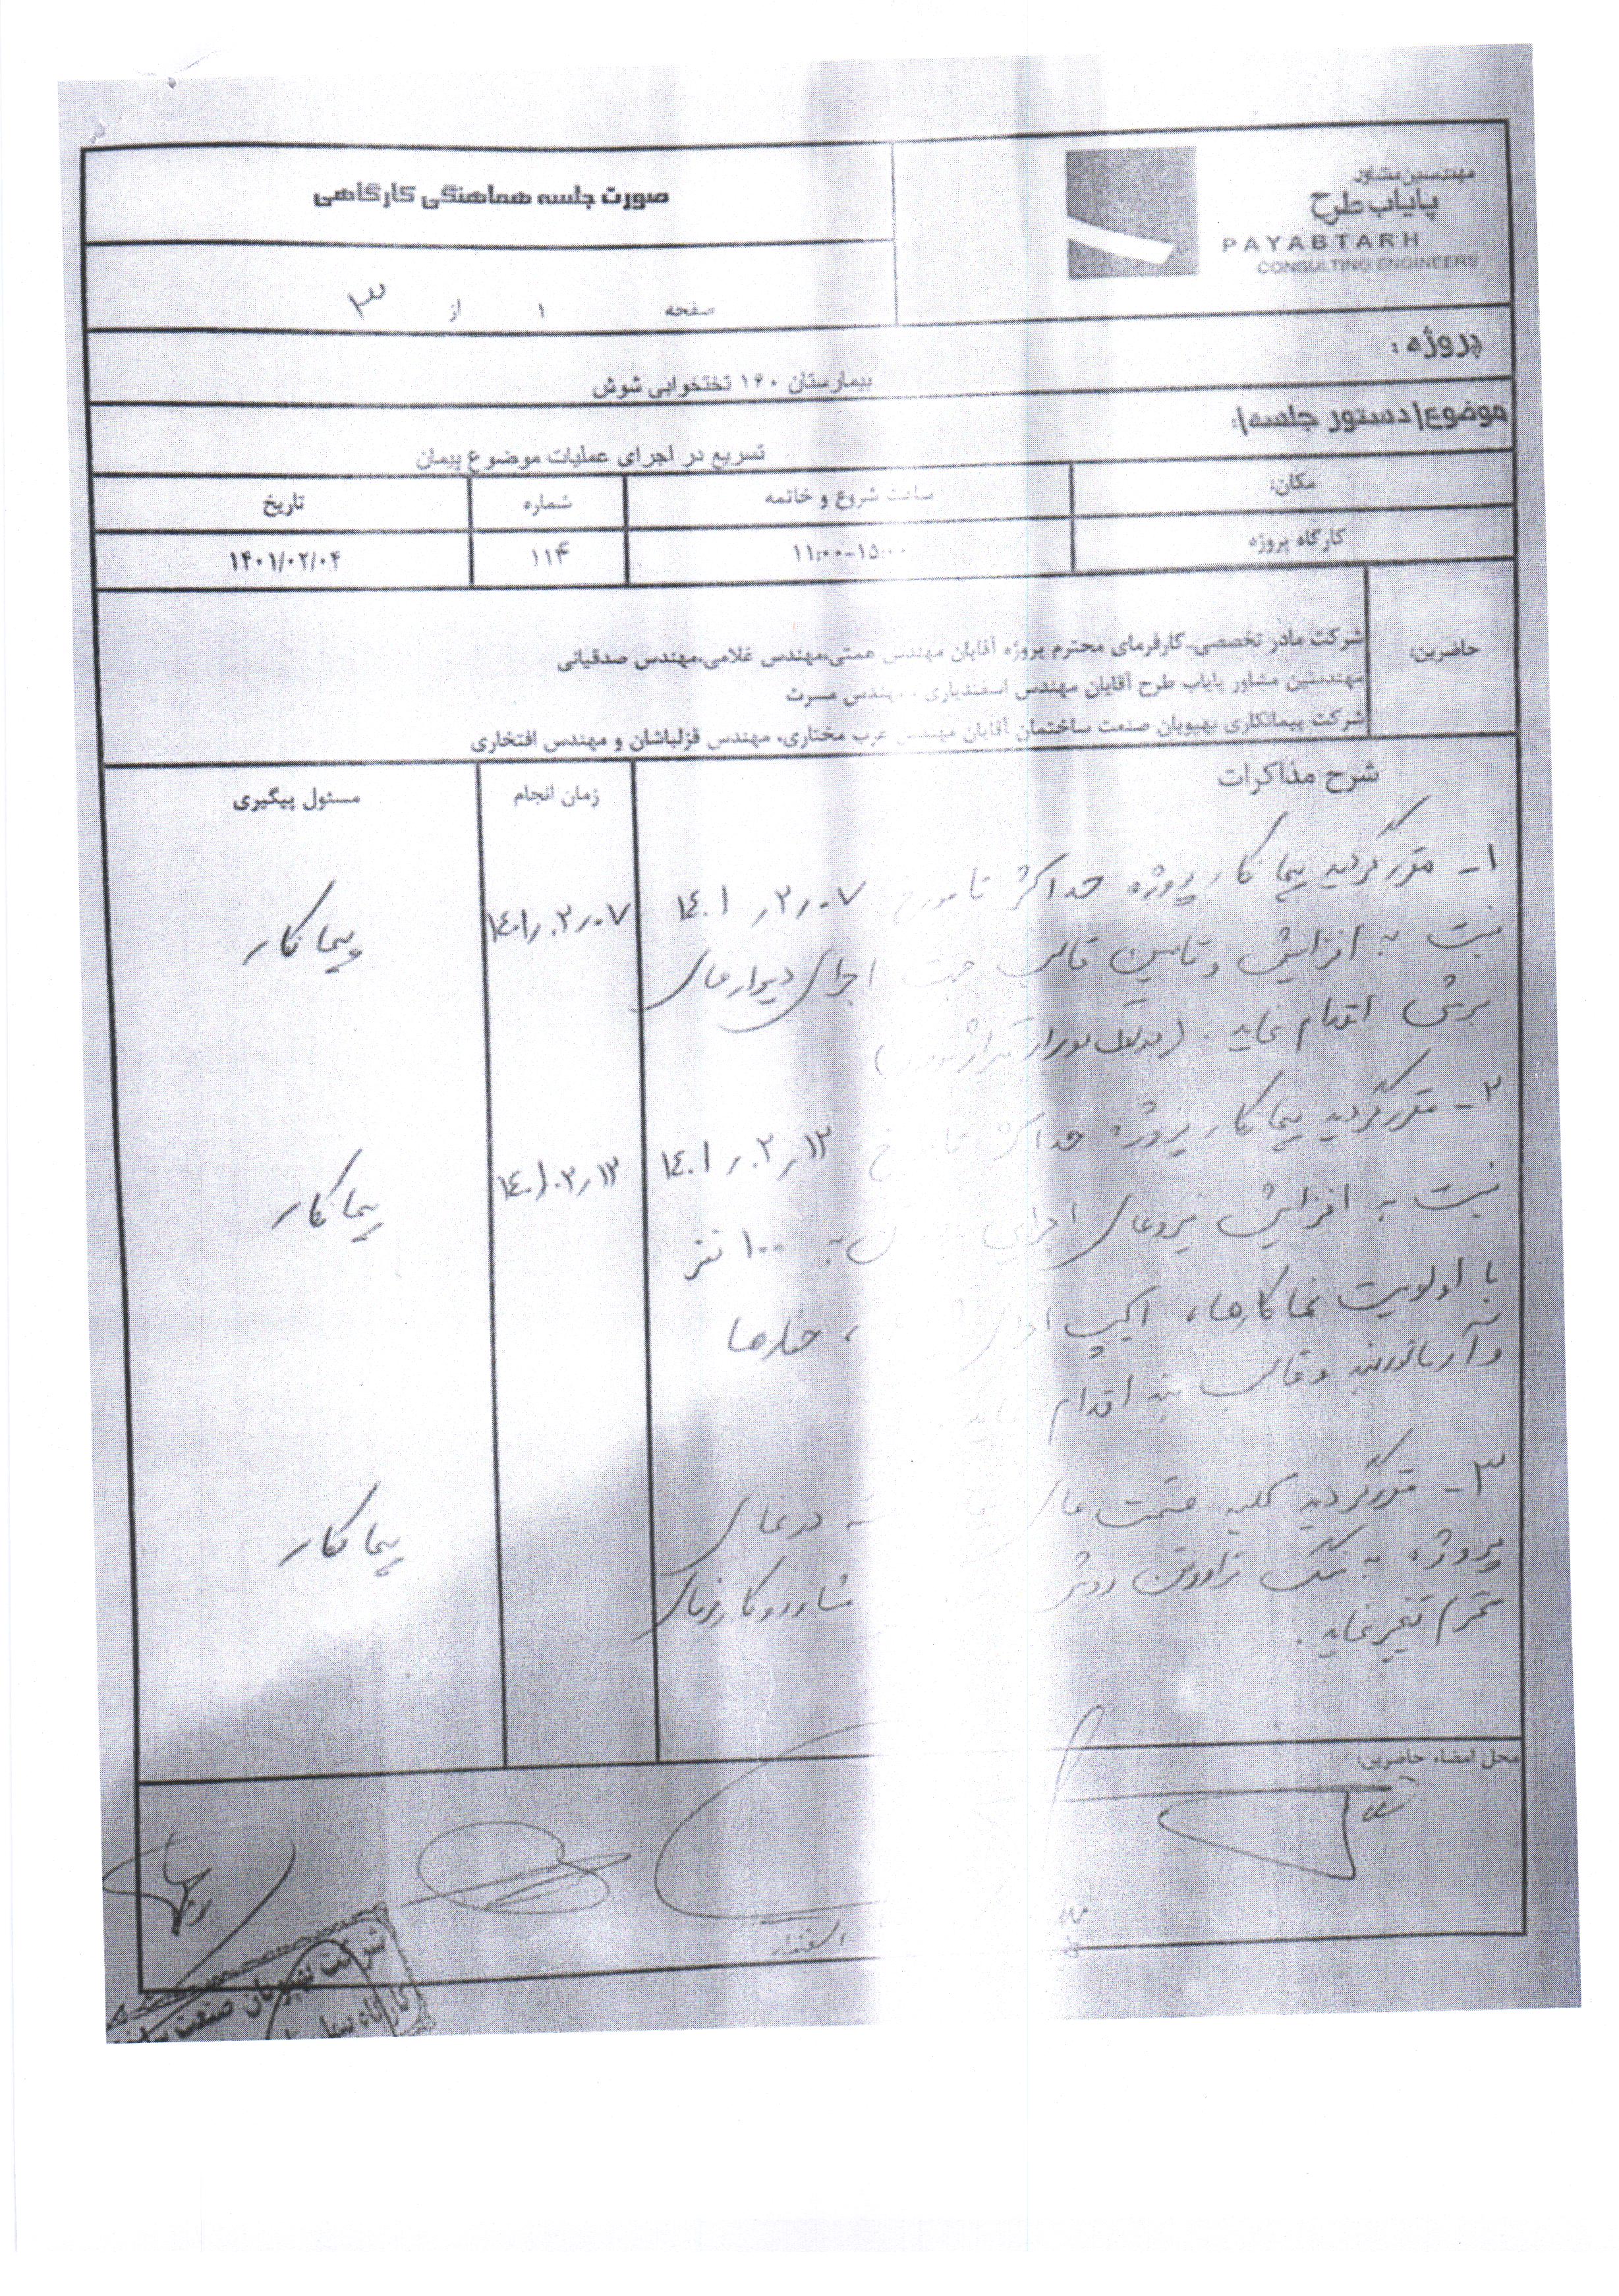 مهندسین مشاور
پایاب طرح
PAYABTARH
CONSULTING ENGINEERS
صورت جلسه هماهنگی کارگاهی
صفحه ۱ از ۳
پروژه :
بیمارستان ۱۶۰ تختخوابی شوش
موضوع(دستور جلسه):
تسریع در اجرای عملیات موضوع پیمان
مکان: ساعت شروع و خاتمه شماره تاریخ
کارگاه پروژه ۱۱:۰۰-۱۵:۰۰ ۱۱۴ ۱۴۰۱/۰۲/۰۴
حاضرین:
شرکت مادر تخصصی-کارفرمای محترم پروژه آقایان مهندس همتی،مهندس غلامی،مهندس صدقیانی
مهندسین مشاور پایاب طرح آقایان مهندس اسفندیاری ، مهندس مسرت
شرکت پیمانکاری بهبویان صنعت ساختمان آقایان مهندس عرب مختاری، مهندس قزلباشان و مهندس افتخاری
شرح مذاکرات زمان انجام مسئول پیگیری
۱- مقرر گردید پیمانکار پروژه حداکثر تا مورخ ۱۴۰۱٫۰۲٫۰۷ ۱۴۰۱٫۰۲٫۰۷ پیمانکار
نسبت به افزایش و تامین قالب جهت اجرای دیوارهای
برشی اقدام نماید.
۲- مقرر گردید پیمانکار پروژه حداکثر تا مورخ ۱۴۰۱٫۰۲٫۱۲ ۱۴۰۱٫۰۲٫۱۲ پیمانکار
نسبت به افزایش نیروهای اجرایی به ۱۰۰ نفر
با اولویت نماکارها، اکیپ اجرای ، حفارها
و آرماتوربند و قالب بند اقدام نماید.
۳- مقرر گردید کلیه قسمت های در نمای پیمانکار
پروژه به سنگ تراورتن روشن مشاور و کارفرمای
محترم تغییر نماید.
محل امضاء حاضرین:
اسفندیاری
شرکت بهبویان صنعت
کارگاه